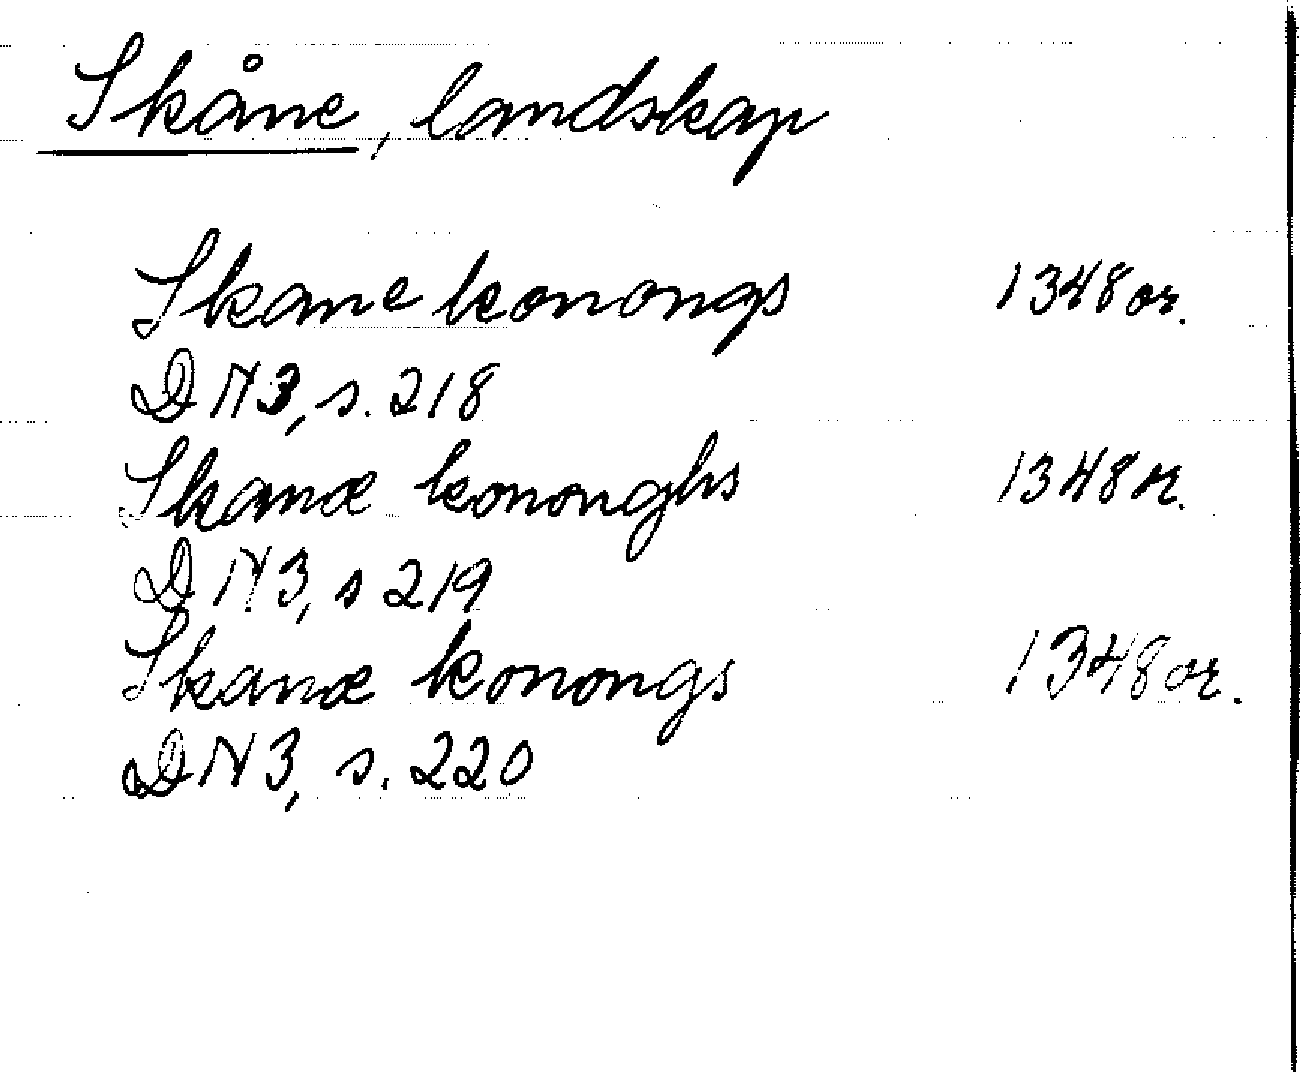 Skåne, landskap
Skane konongs 1348 or.
DN3, s. 218
Skanæ kononghs 1348 or.
DN3, s 219
Skanæ konongs 1348 or.
DN3, s. 220